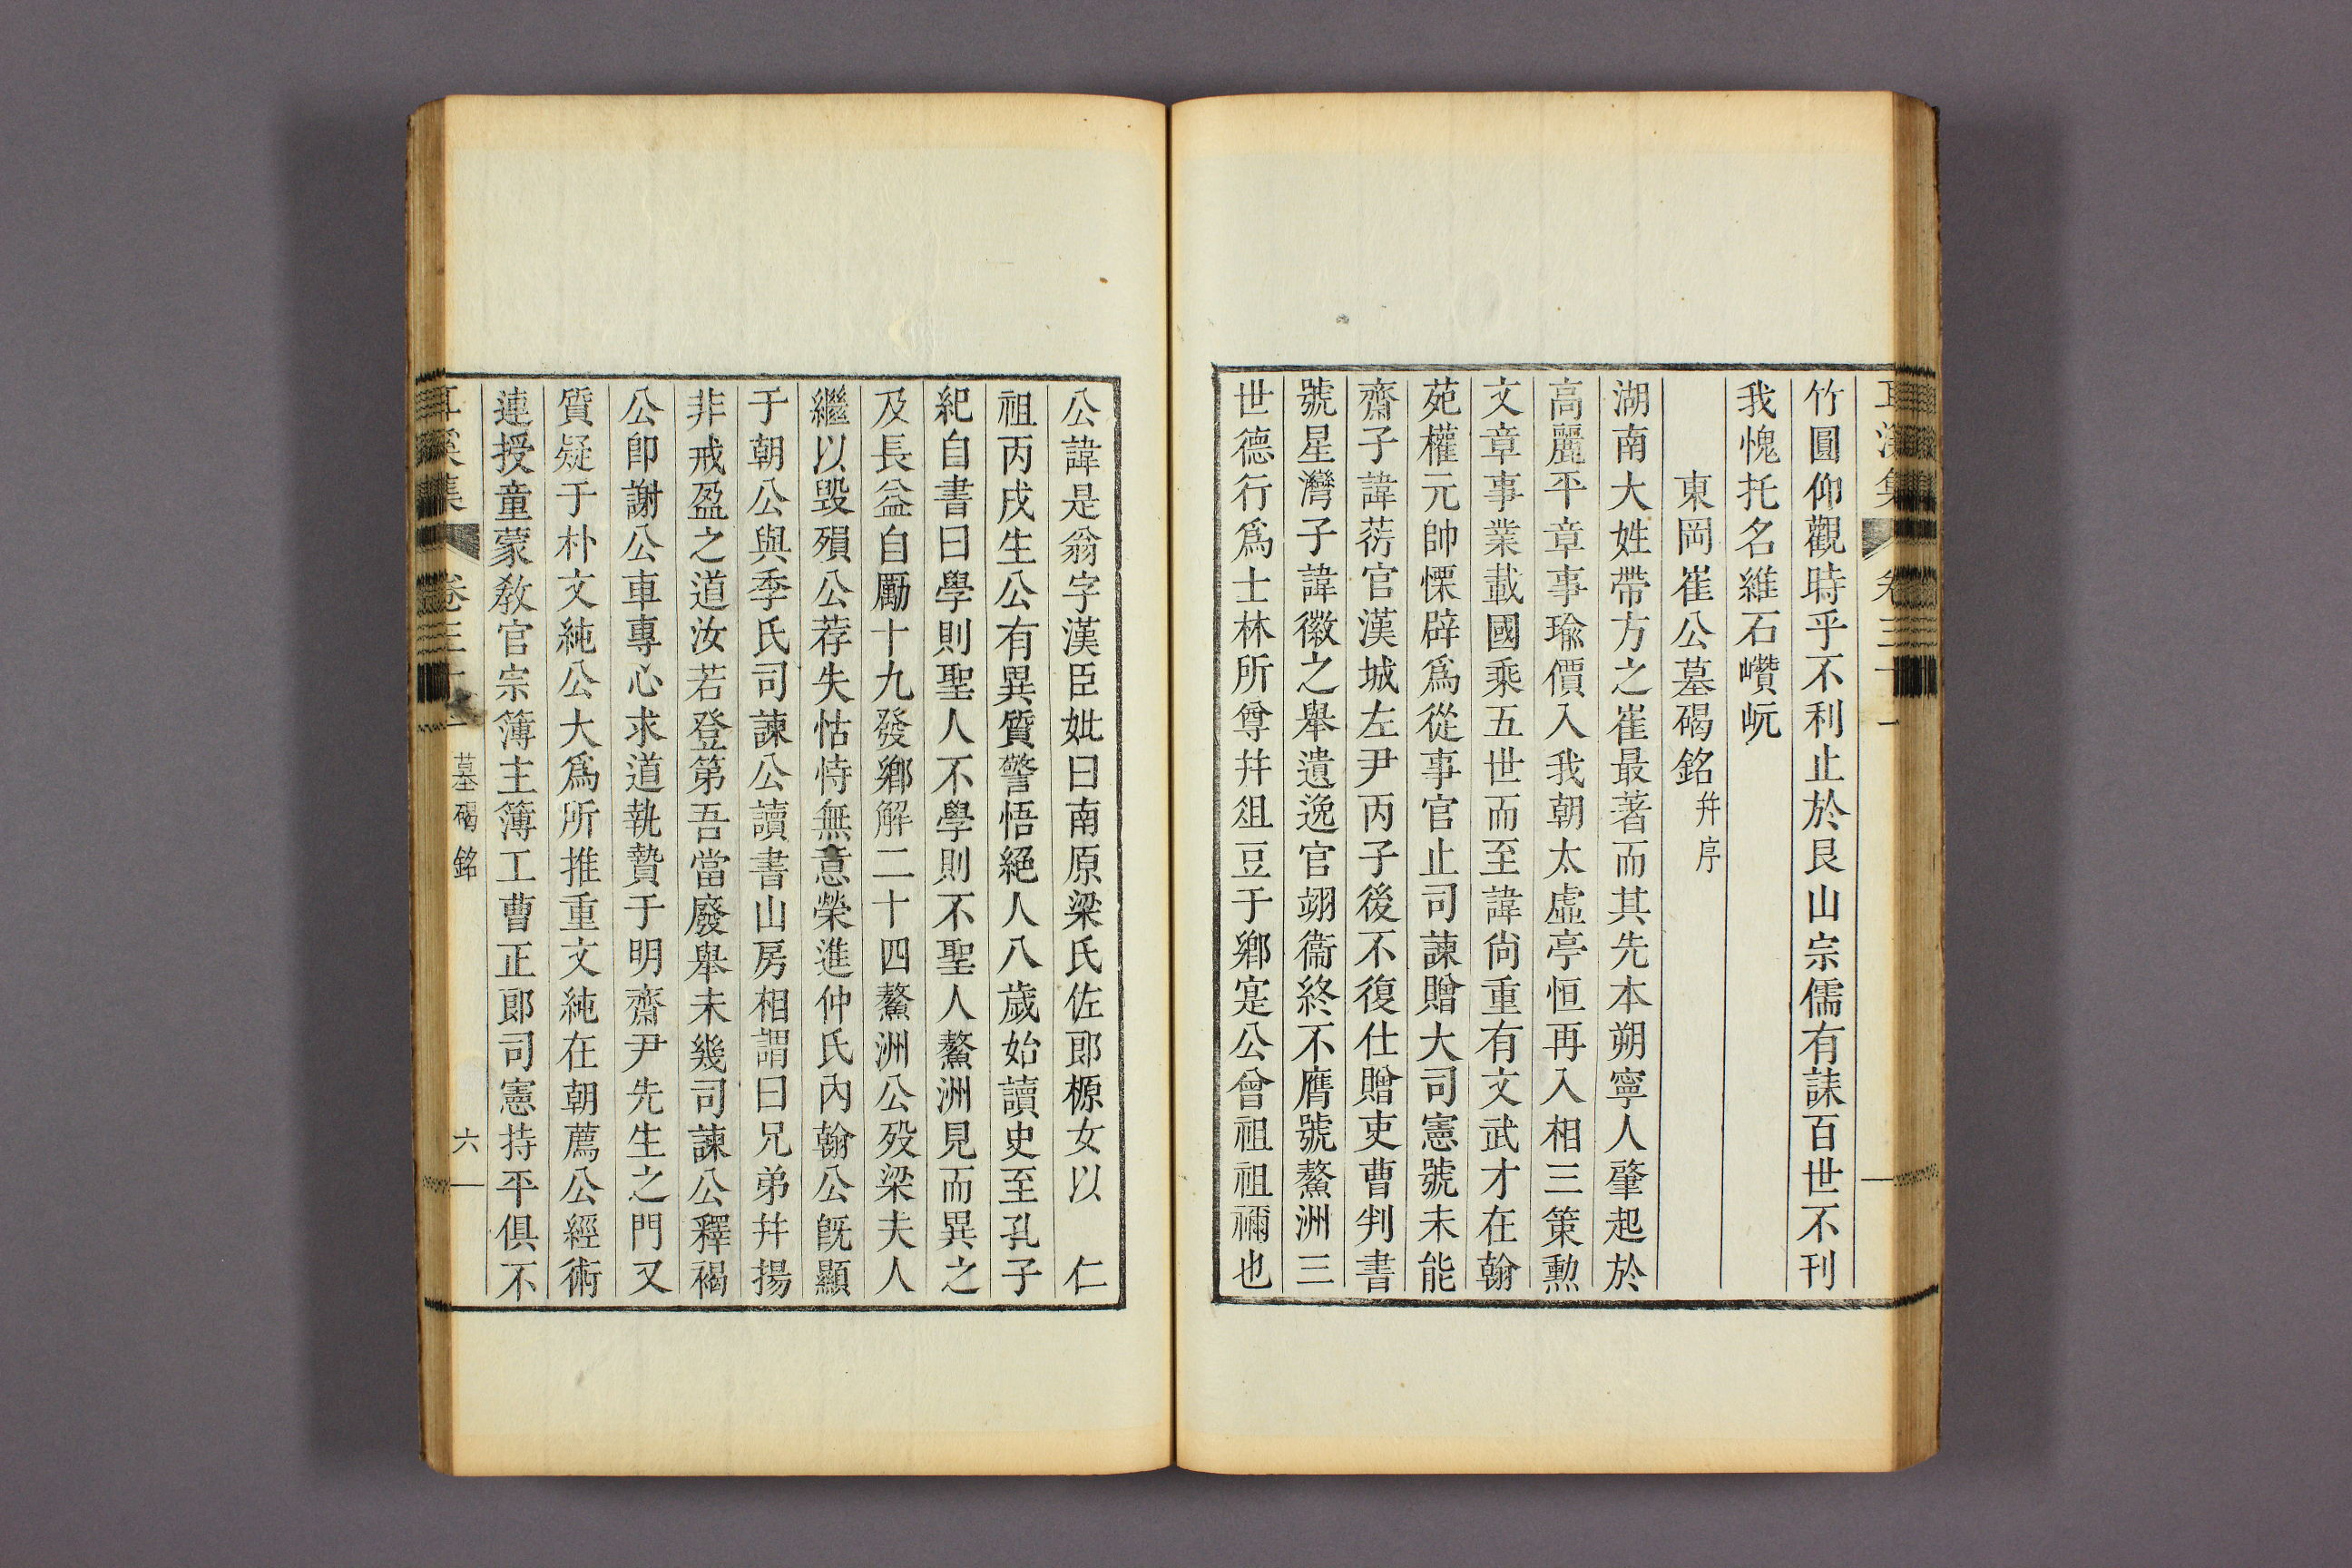 竹圓仰觀時乎不利止於艮山宗儒有誄百世不刊
我愧托名維石巑岏
東岡崔公墓碣銘幷序
湖南大姓帶方之崔最著而其先本朔寧人肇起於
高麗平章事瑜價入我朝太虛亭恒再入相三策勳
文章事業載國乘五世而至諱尙重有文武才在翰
苑權元帥慄辟爲從事官止司諫贈大司憲號未能
齋子諱蒡官漢城左尹丙子後不復仕贈吏曹判書
號星灣子諱徽之舉遺逸官翊衞終不膺號鰲洲三
世德行爲士林所尊幷俎豆于鄉寔公曾祖祖禰也
公諱是翁字漢臣妣曰南原梁氏佐郎榞女以 仁
祖丙戌生公有異質警悟絕人八歲始讀史至孔子
紀自書曰學則聖人不學則不聖人鰲洲見而異之
及長益自勵十九發鄉解二十四鰲洲公歿梁夫人
繼以毀殞公荐失怙恃無意榮進仲氏內翰公旣顯
于朝公與季氏司諫公讀書山房相謂曰兄弟幷揚
非戒盈之道汝若登第吾當廢舉未幾司諫公釋褐
公卽謝公車專心求道執贄于明齋尹先生之門又
質疑于朴文純公大爲所推重文純在朝薦公經術
連授童蒙敎官宗簿主簿工曹正郎司憲持平俱不
耳溪集 卷三十 墓碣銘 六